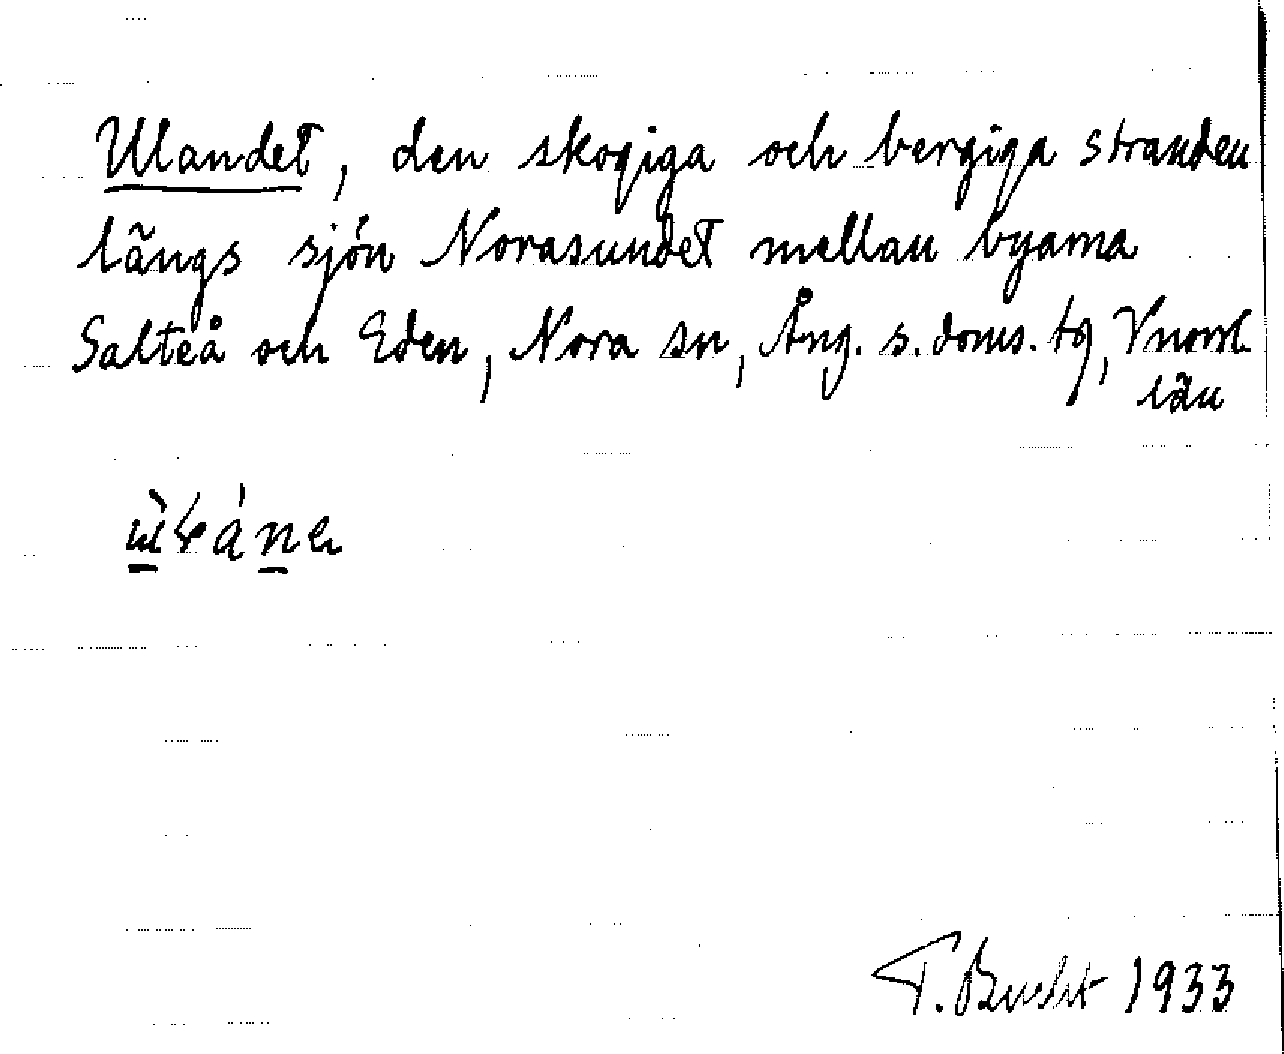 Ulandet, den skogiga och bergiga stranden
längs sjön Norasundet mellan byarna
Salteå och Eden, Nora sn, Ång. s. doms. tg, Vnorrl.
län
T. Bucht 1933